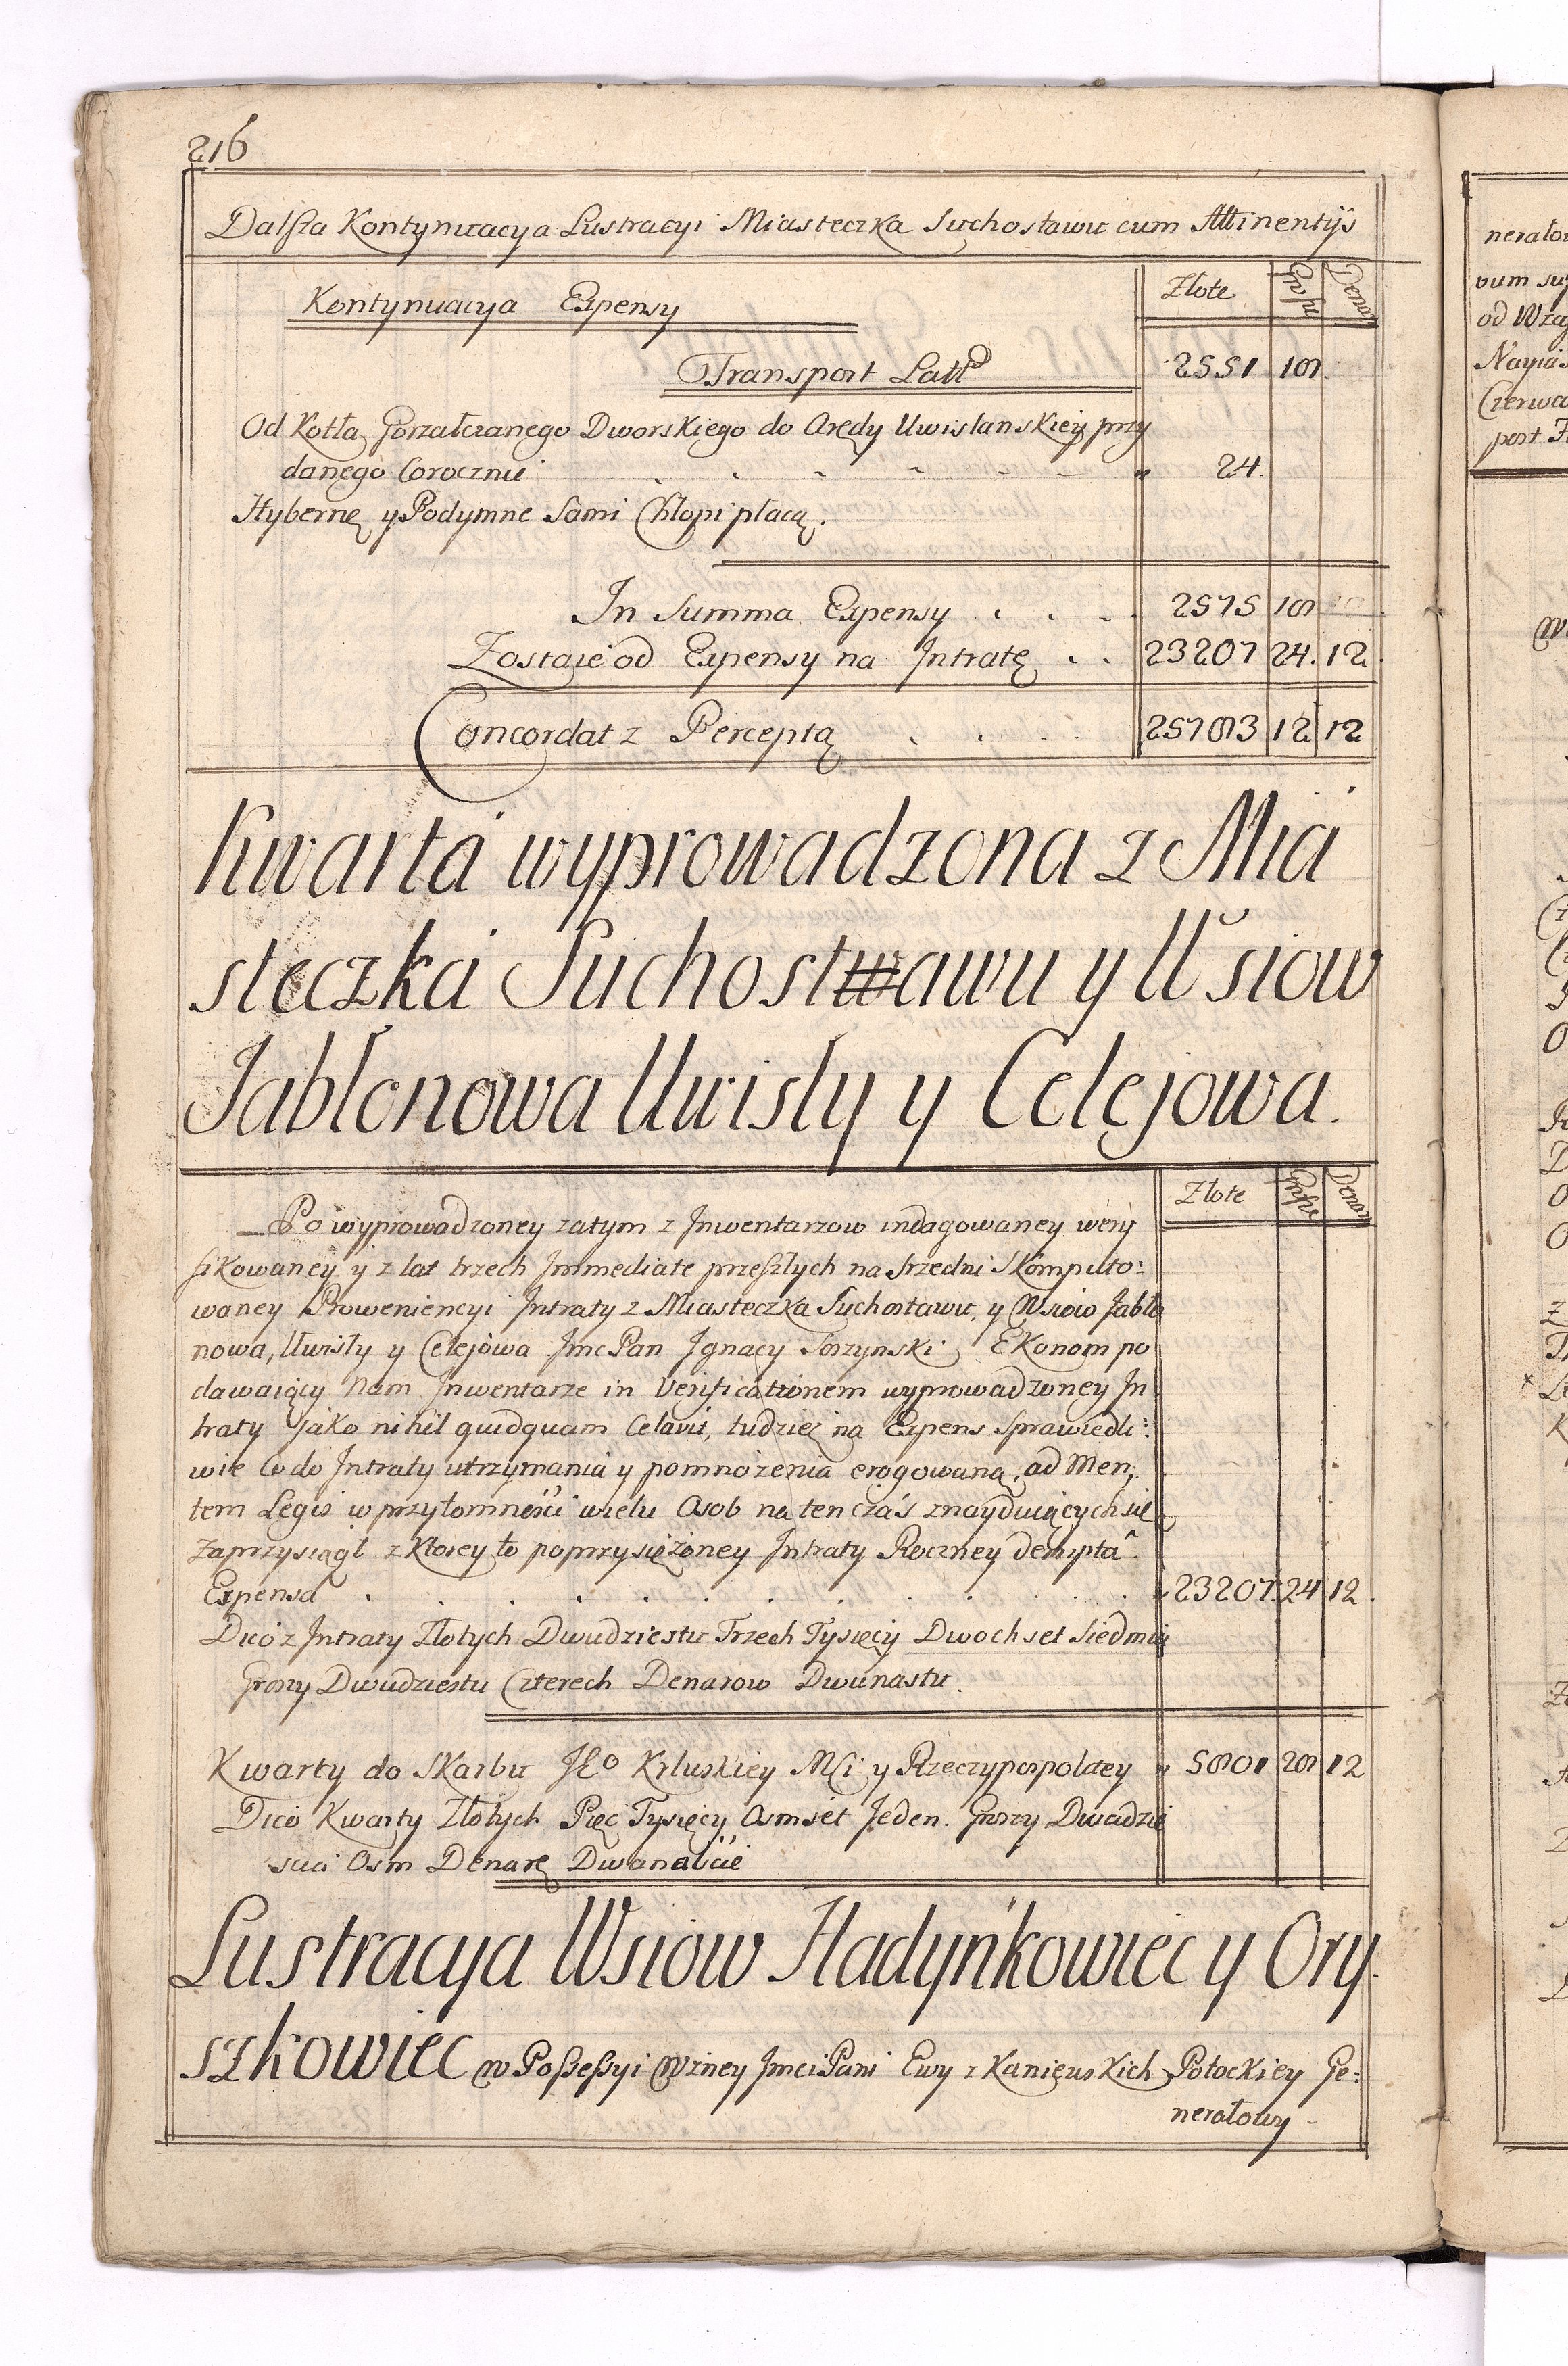 216
Dalsza Kontynuacya Lustracyi Miasteczka Suchostawu cum Attinentijs
Kontynuacya Expensy Złote Grosze Denar
Transport Latt 2551 18
Od Kotła Gorzałczanego Dworskiego do Arędy Uwislanskiey przy
danego Corocznie 24.
Hybernę y Podymne Sami Chłopi płacą.
In Summa Expensy 2575 18
Zostaie od Expensy na Intratę 23207 24. 12.
Concordat z Perceptą 25783 12 12
Kwarta wyprowadzona z Mia
steczka Suchostawu y Wsiow
Jabłonowa Uwisły y Celejowa.
Złote Grosze Denar
Po wyprowadzoney zatym z Inwentarzow indagowaney wery
fikowaney y z lat trzech Immediate przeszłych na srzedni Skomputo:
waney Proweniencyi Intraty z Miasteczka Suchostawu, y Wsiow Jabło
nowa, Uwisły y Celejowa Jmc Pan Ignacy Torzynski Ekonom po
dawaiący Nam Inwentarze in Verificationem wyprowadzoney In
traty Jako nihil quidquam Celavit, tudziez na Expens Sprawiedli:
wie Co do Intraty utrzymania y pomnożenia erogowaną, ad Men:
tem Legis w przytomności wielu Osob na ten czas znayduiących się
Zaprzysiągł z Ktorey to poprzysiężoney Intraty Roczney dempta
Expensa 23207. 24 12.
Dico z Intraty Złotych Dwudziestu Trzech Tysięcy Dwochset Siedmiu
Groszy Dwudziestu Czterech Denarow Dwunastu.
Kwarty do Skarbu JKo Krluskiey Mci y Rzeczypospolitey 5801 28 12
Dico Kwarty Złotych Pięc Tysięcy Osmset Jeden. Groszy Dwadzie
scia Osm Denarę Dwanaście
Lustracya Wsiow Hadyńkowiec y Ory
szkowiec w Possessyi Wzney Jmci Pani Ewy z Kanięuskich Potockiey Ge:
nerałowy